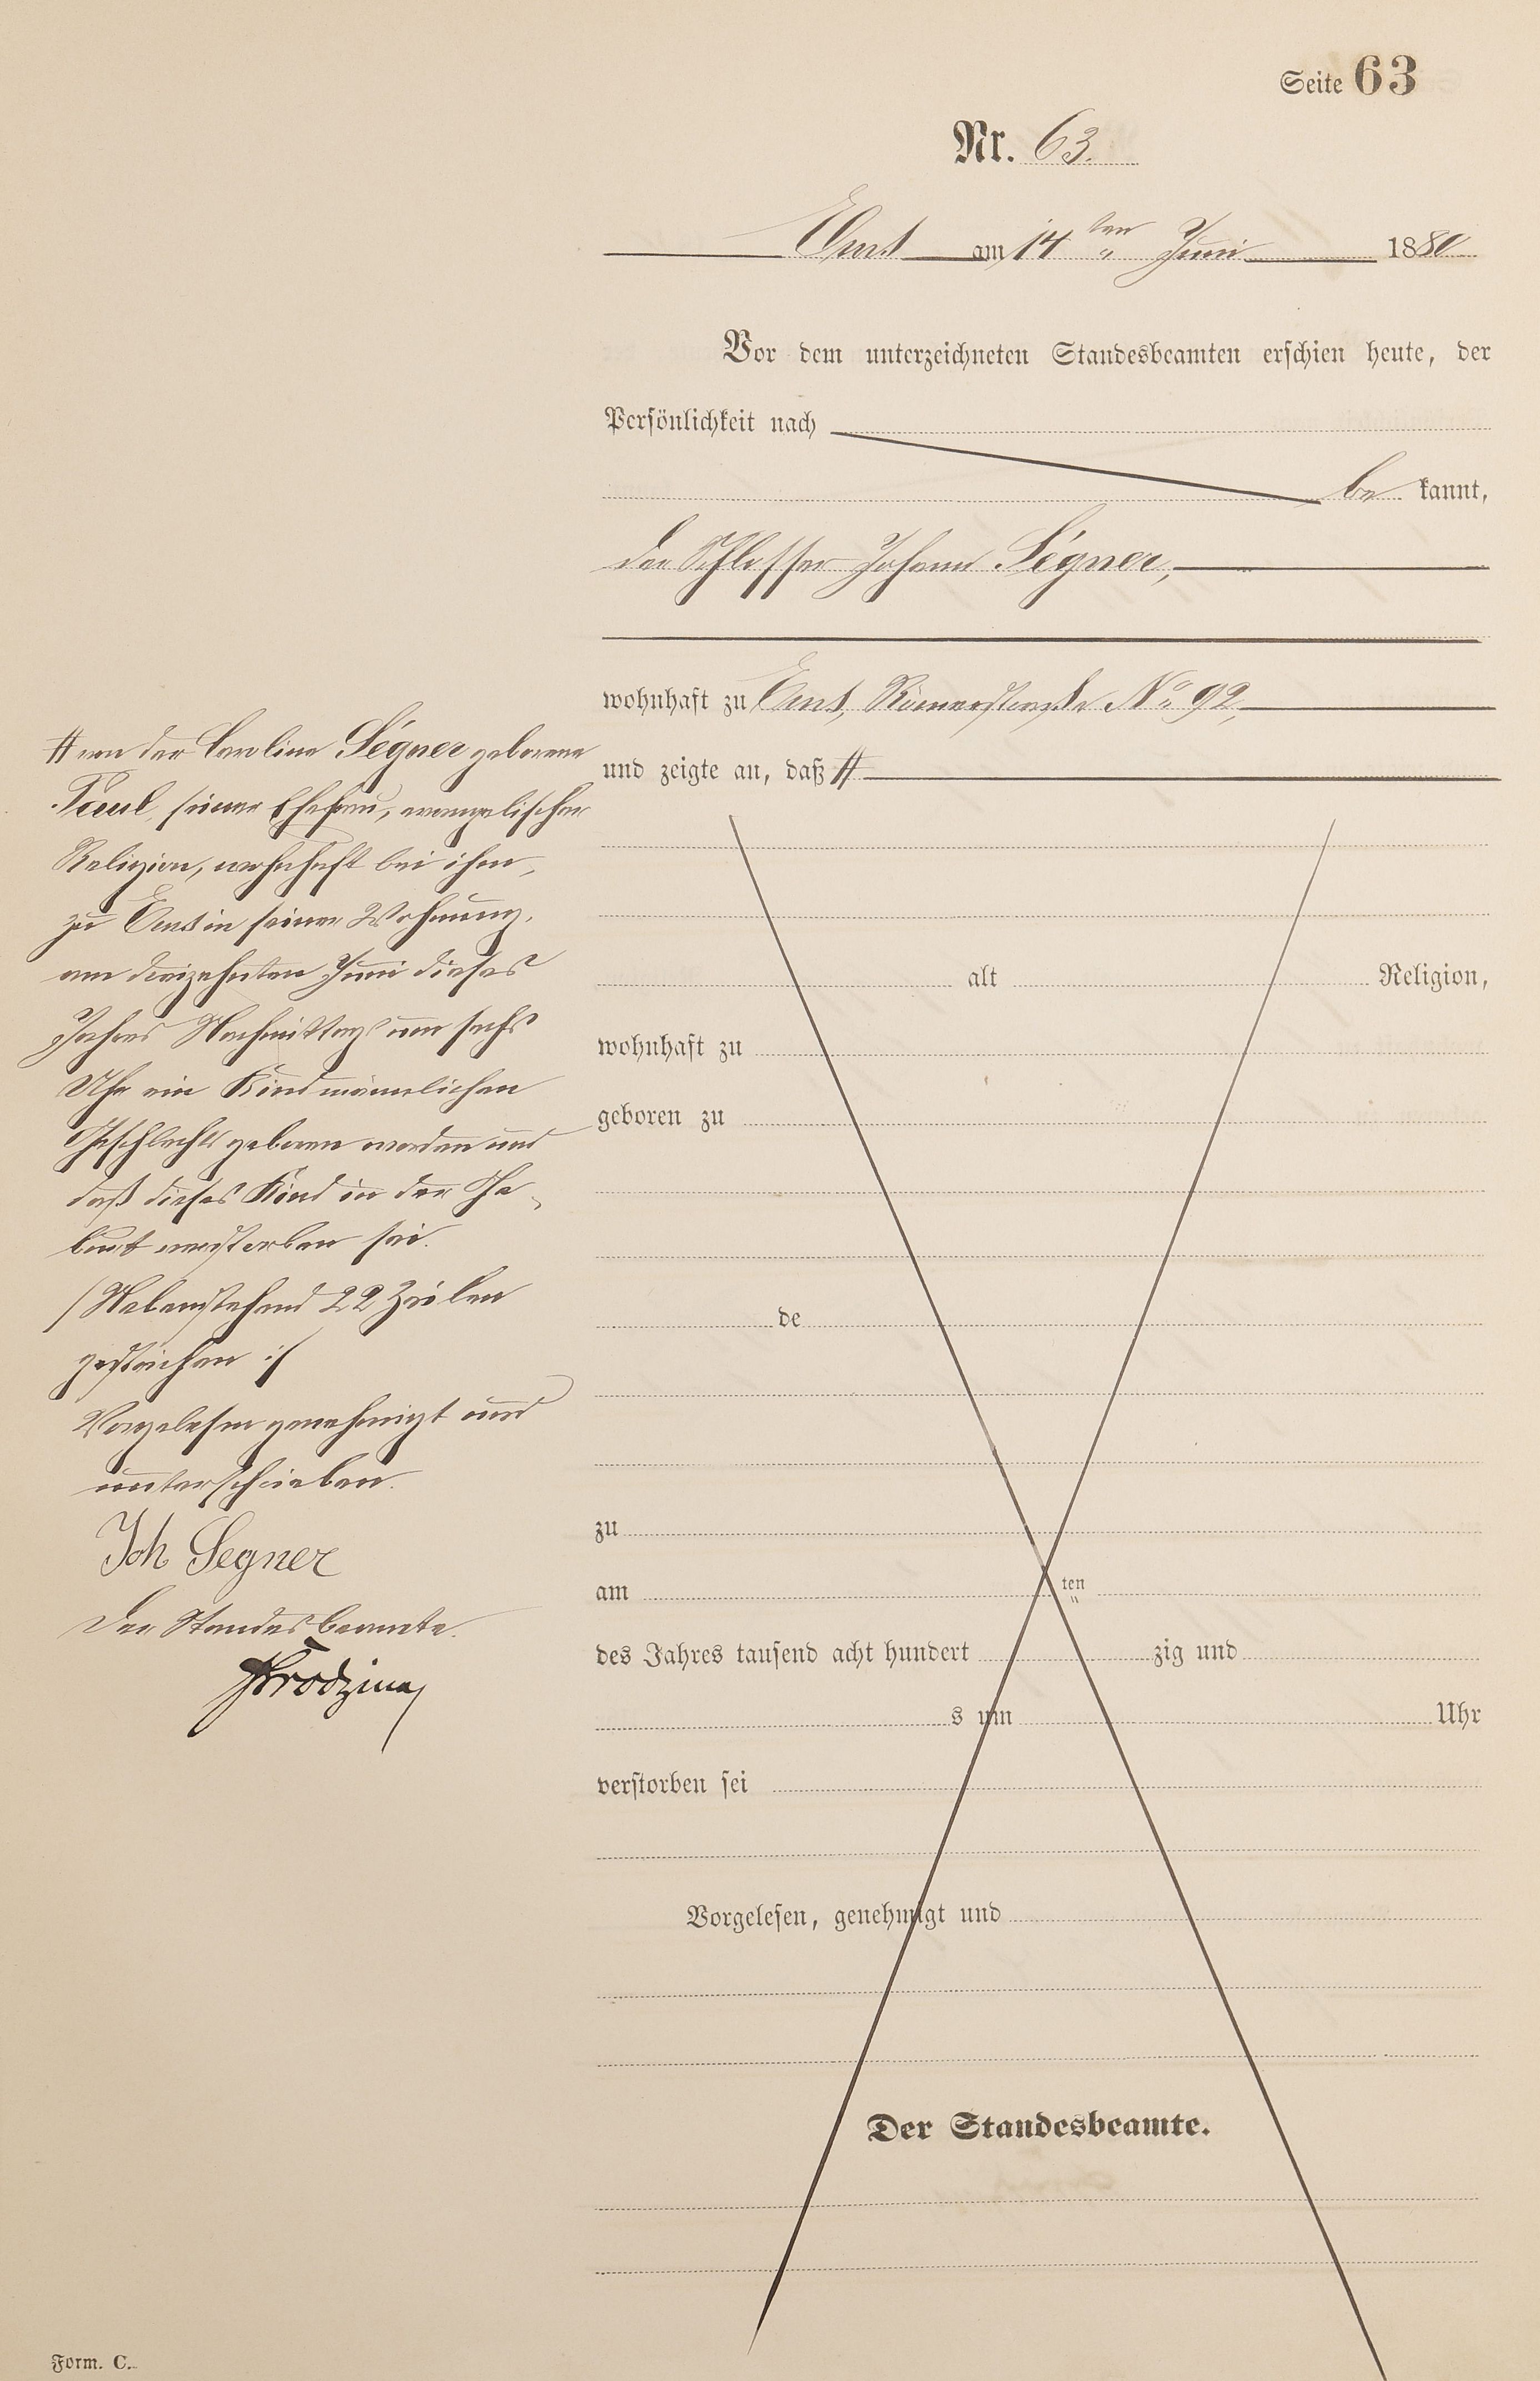 Seite 63
Nr. 63.
Ems am 14 ten Juni 1880
Vor dem unterzeichneten Standesbeamten erschien heute, der
Persönlichkeit nach
be kannt,
der Schlosser JohannSégner,
wohnhaft zu Ems, Römerstraße No 92,
und zeigte an, daß #
# von der Caroline Ségner geborene
Paul, seiner Ehefrau, evangelischer
Religion, wohnhaft bei ihm,
zu Ems in seiner Wohnung,
am dreizehnten Juni dieses
Jahres Nachmittags um sechs
Uhr ein Kind männlichen
Geschlechts geboren worden und
daß dieses Kind in der Ge-
burt verstorben sei.
/Nebenstehend 22 Zeilen
gestrichen :/
Vorgelesen genehmigt und
unterschrieben.
Joh Segner
Der Standesbeamte.
alt Religion,
wohnhaft zu
geboren zu
de
zu
am ten
des Jahres tausend acht hundert zig und
s um Uhr
verstorben sei
Vorgelesen, genehmigt und
Der Standesbeamte.
Form. C.